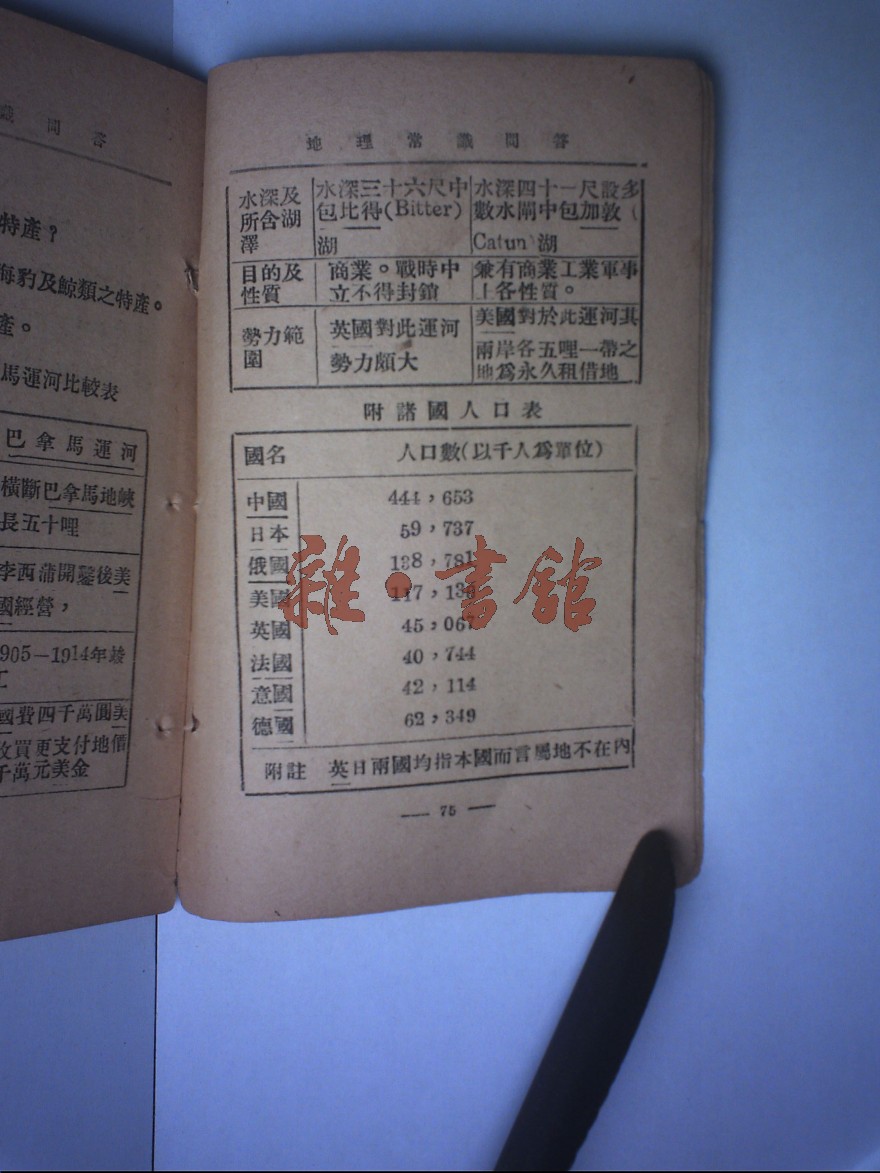 識問答
特產？
海豹及鯨類之特產。
產。
馬運河比較表
巴拿馬運河
橫斷巴拿馬地峽
長五十哩
李西蒲開鑿後美
國經營，
905－1914年竣
工
國費四千萬圓美
收買更支付地價
千萬元美金
地理常識問答
水深及所含湖澤
水深三十六尺中
包比得(Bitter)
湖
水深四十一尺設多
數水閘中包加敦(
Catun)湖
目的及性質
商業。戰時中
立不得封鎖
兼有商業工業軍事
上各性質。
勢力範圍
英國對此運河
勢力頗大
美國對於此運河其
兩岸各五哩一帶之
地爲永久租借地
附諸國人口表
國名 人口數(以千人爲單位)
中國 444，653
日本 59，737
俄國
美國
英國 45，067
法國 40，744
意國 42，114
德國 62，349
附註 英日兩國均指本國而言屬地不在內
— 75 —
雜·書館